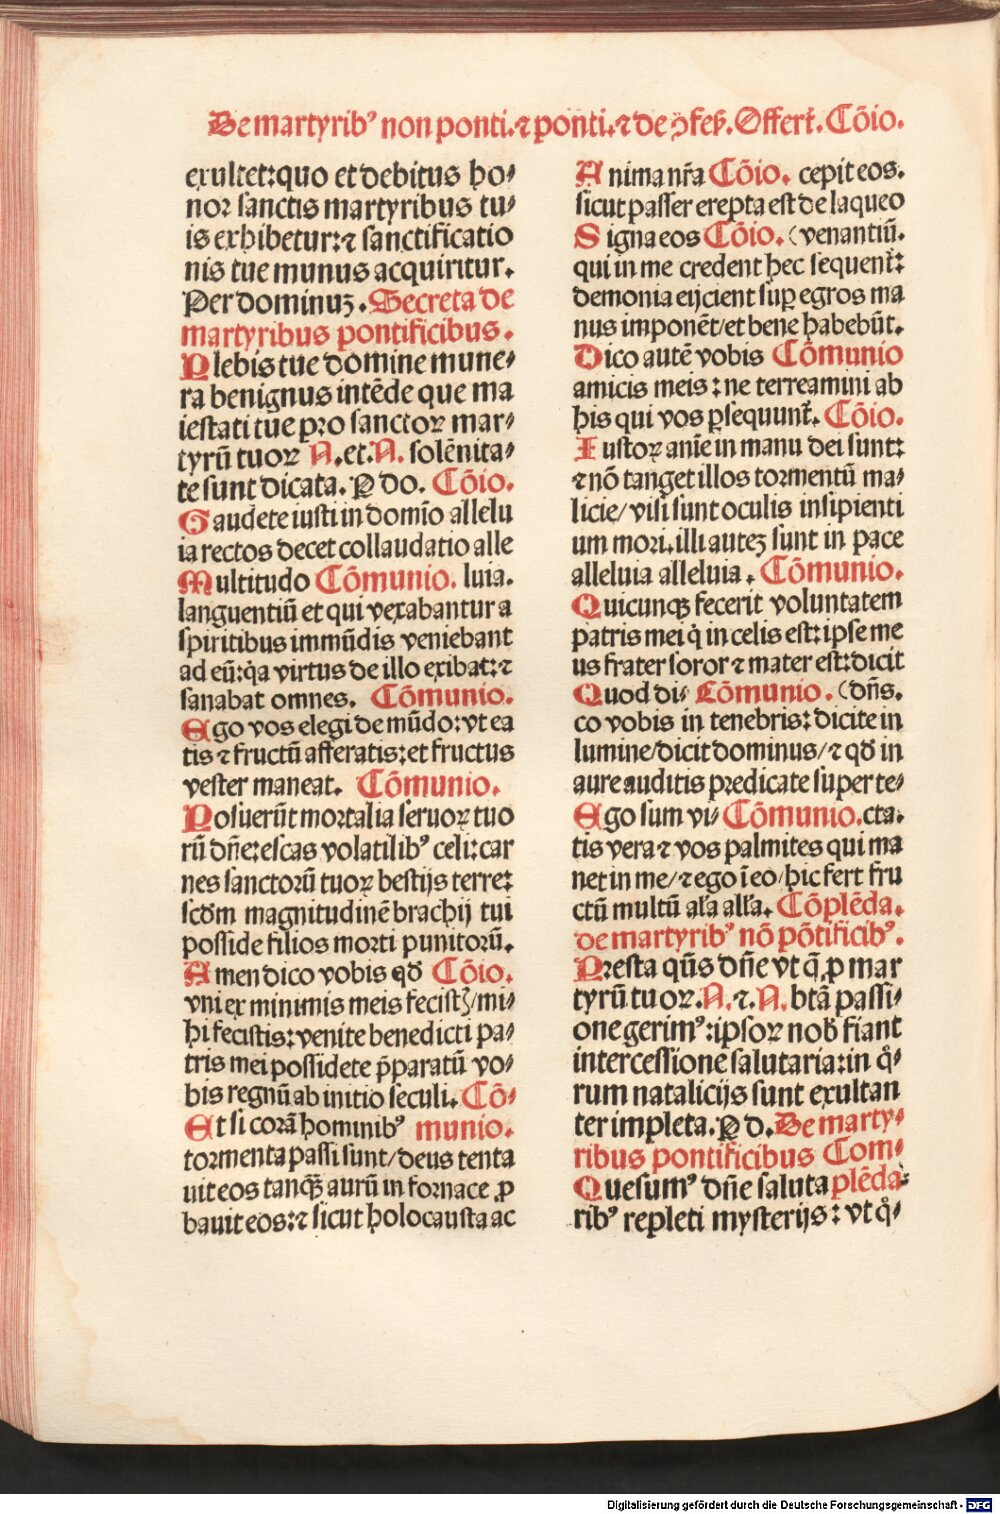 De martyribꝰ non ponti.⁊ ponti.⁊ de ꝯfeſſ. Offert̄. Cōio.
exultet:quo et debitus ho⸗
nor ſanctis martyribus tu⸗
is exhibetur:⁊ ſanctificatio
nis tue munus acquiritur.
Per dominuꝫ. Secreta de
martyribus pontificibus.
Plebis tue domine mune⸗
ra benignus intēde que ma
ieſtati tue pro ſanctoꝝ mar⸗
tyrū tuoꝝ N.et.N. ſolēnita⸗
te ſunt dicata. P do. Cōio.
Gaudete iuſti in domīo allelu
ia rectos decet collaudatio alle
Multitudo Cōmunio. luia.
languentiū et qui vexabantur a
ſpiritibus immūdis veniebant
ad eū:q̇a virtus de illo exibat:⁊
ſanabat omnes. Cōmunio.
Ego vos elegi de mūdo:vt ea
tis ⁊ fructū afferatis:et fructus
veſter maneat. Cōmunio.
Poſuerūt mortalia ſeruoꝝ tuo
rū dn̄e:eſcas volatilibꝰ celi:car
nes ſanctorū tuoꝝ beſtijs terre:
ſcd̄m magnitudinē brachij tui
poſſide filios morti punitorū.
Amen dico vobis qd̄ Cōio.
vni ex minimis meis feciſtꝭ/mi⸗
hi feciſtis:venite benedicti pa⸗
tris mei poſſidete p̄paratū vo⸗
bis regnū ab initio ſeculi. Cō⸗
Et ſi corā hominibꝰ munio.
tormenta paſſi ſunt/deus tenta
uit eos tanqꝫ aurū in fornace ꝓ
bauit eos:⁊ ſicut holocauſta ac
Anima nr̄a Cōio. cepit eos.
ſicut paſſer erepta eſt de laqueo
Signa eos Cōio. (venantiū.
qui in me credent hec ſequent̄:
demonia eijcient ſuꝑ egros ma
nus imponēt/et bene habebūt.
Dico autē vobis Cōmunio
amicis meis:ne terreamini ab
his qui vos ꝑſequunt̄. Cōio.
Iuſtoꝝ anīe in manu dei ſunt:
⁊ nō tanget illos tormentū ma⸗
licie/viſi ſunt oculis inſipienti
um mori.illi auteꝫ ſunt in pace
alleluia alleluia. Cōmunio.
Quicunqꝫ fecerit voluntatem
patris mei q̇ in celis eſt:ipſe me
us frater ſoror ⁊ mater eſt:dicit
Quod di⸗ Cōmunio. (dn̄s.
co vobis in tenebris:dicite in
lumine/dicit dominus/⁊ qd̄ in
aure auditis predicate ſuper te⸗
Ego ſum vi⸗ Cōmunio.cta.
tis vera ⁊ vos palmites qui ma
net in me/⁊ ego ī eo/hic fert fru
ctū multū aĺa alĺa. Cōplēda.
de martyribꝰ nō pōtificibꝰ.
Preſta qūs dn̄e vt q̄ ꝓ mar
tyrū tuoꝝ.N.⁊.N.btā paſſi⸗
one gerimꝰ:ipſoꝝ nob̄ fiant
interceſſione ſalutaria:in q̊⸗
rum natalicijs ſunt exultan
ter impleta.P d.De marty⸗
ribus pontificibus Com⸗
Queſumꝰ dn̄e ſaluta plēda
ribꝰ repleti myſterijs:vt q̊⸗
Digitalisierung gefördert durch die Deutsche Forschungsgemeinschaft - DFG